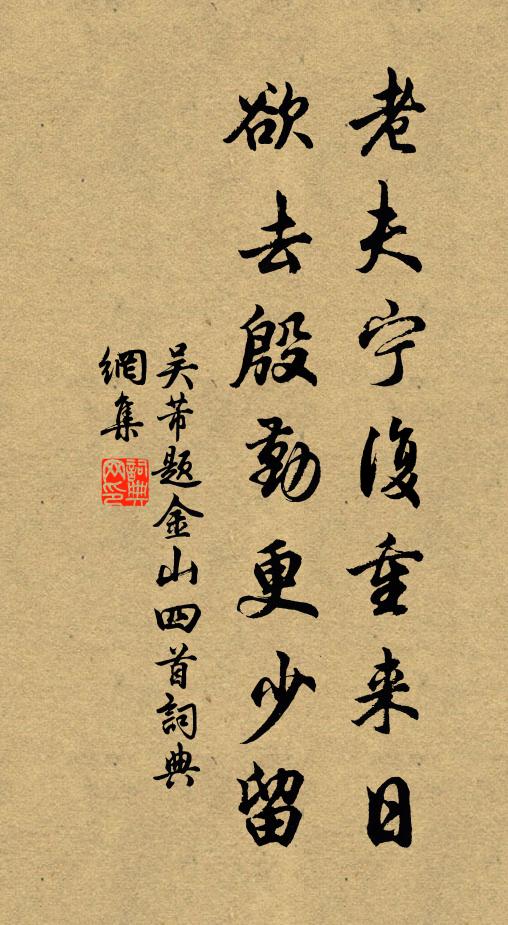 老夫宁復重来日
欲去殷勤更少留
吴芾题金山四首詞典
網集
詞典网印